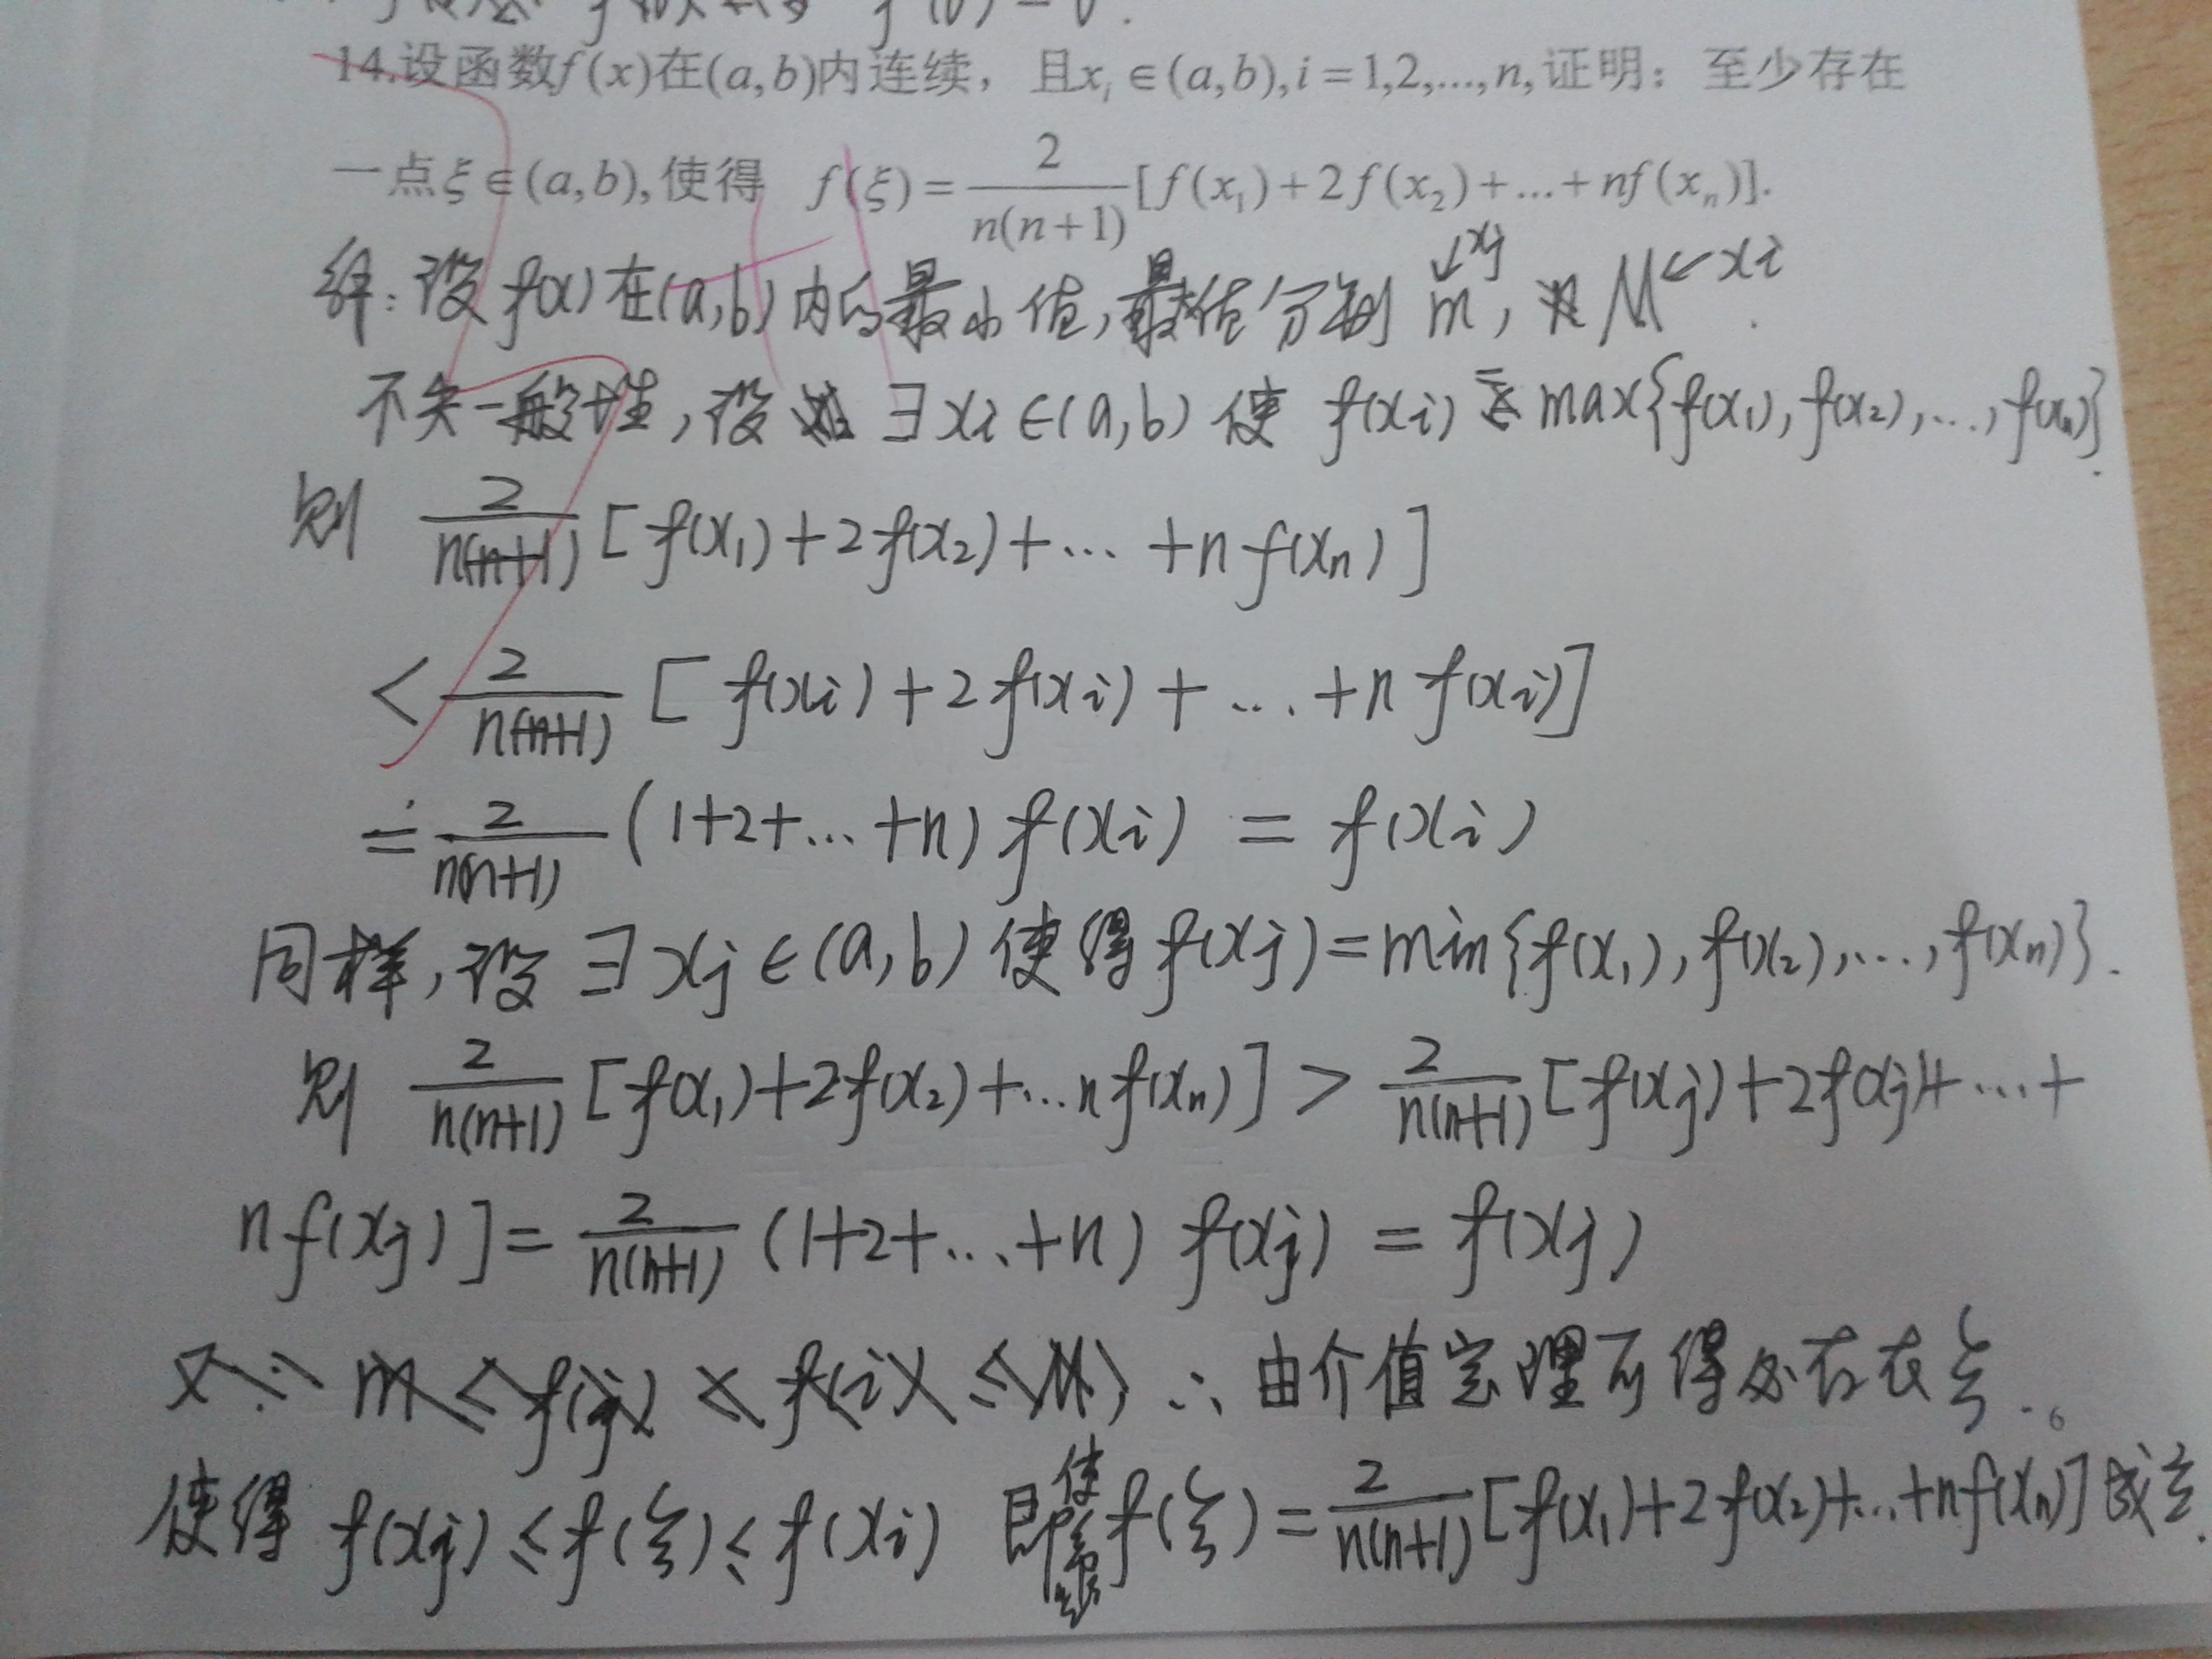 14.设函数f(x)在(a,b)内连续，且x_i∈(a,b),i=1,2,...,n,证明：至少存在
一点ξ∈(a,b),使得 f(ξ)=\frac{2}{n(n+1)}[f(x_1)+2f(x_2)+...+nf(x_n)].
解：设f(x)在(a,b)内的最小值,最大值分别 m↙xj, M←xi.
不失一般性,设 ∃xi∈(a,b) 使 f(xi)=max{f(x_1),f(x_2),...,f(x_n)}.
则 \frac{2}{n(n+1)}[f(x_1)+2f(x_2)+...+nf(x_n)]
<\frac{2}{n(n+1)}[f(xi)+2f(xi)+...+nf(xi)]
=\frac{2}{n(n+1)}(1+2+...+n)f(xi)=f(xi)
同样,设∃xj∈(a,b)使得f(xj)=min{f(x_1),f(x_2),...,f(x_n)}.
则 \frac{2}{n(n+1)}[f(x_1)+2f(x_2)+...nf(x_n)]>\frac{2}{n(n+1)}[f(xj)+2f(xj)+...+
nf(xj)]=\frac{2}{n(n+1)}(1+2+...+n)f(xj)=f(xj)
∴由介值定理可得必存在ξ.。
使得 f(xj)≤f(ξ)≤f(xi) 即使f(ξ)=\frac{2}{n(n+1)}[f(x_1)+2f(x_2)+...+nf(x_n)]成立.